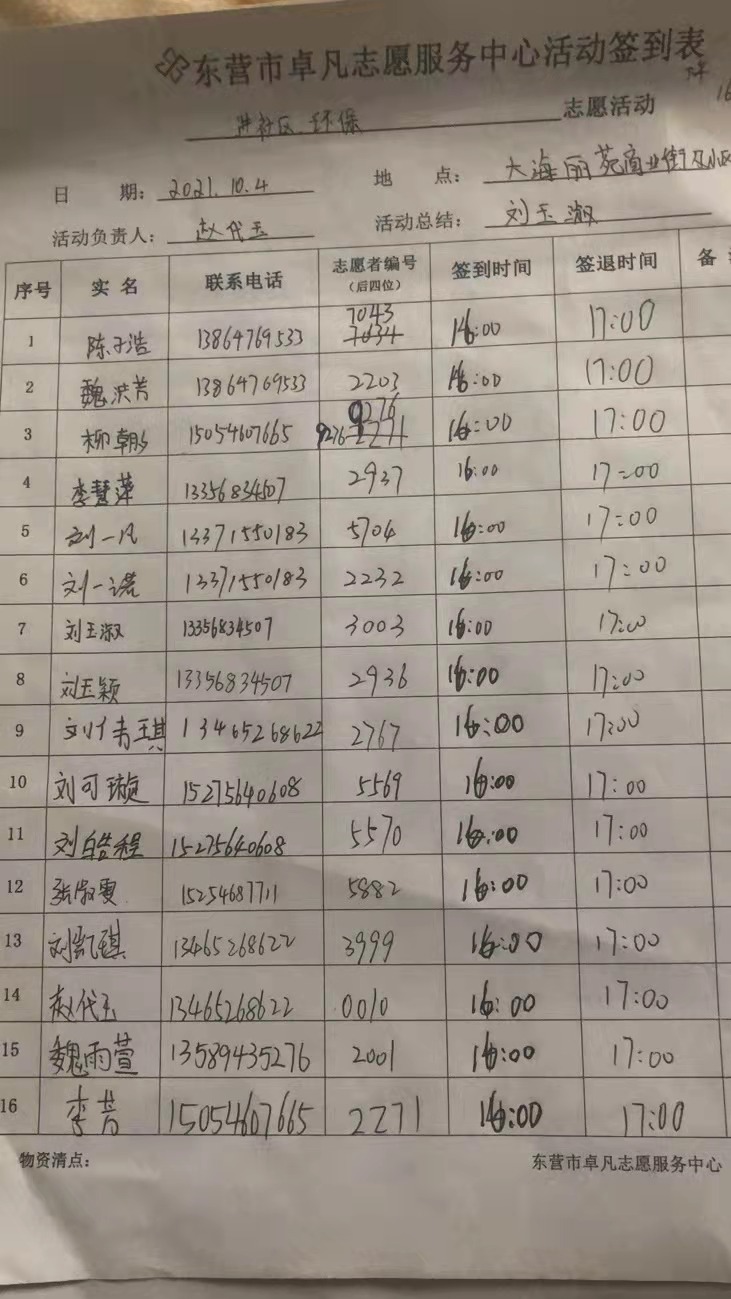 东营市卓凡志愿服务中心活动签到表
进社区、环保 志愿活动 16
日 期: 2021.10.4 地 点: 大海丽苑商业街及小区
活动负责人: 赵代玉 活动总结: 刘玉淑
序号 实名 联系电话 志愿者编号(后四位) 签到时间 签退时间 备
1 陈子浩 13864769533 7043 7034 16:00 17:00
2 魏洪芳 13864769533 2203 16:00 17:00
3 柳朝 15054607665 0276 9276 2271 16:00 17:00
4 李慧萍 13356834507 2937 16:00 17:00
5 刘一凡 13371550183 5704 16:00 17:00
6 刘一诺 13371550183 2232 16:00 17:00
7 刘玉淑 13356834507 3003 16:00 17:00
8 刘玉颖 13356834507 2936 16:00 17:00
9 刘倩琪 13465268622 2767 16:00 17:00
10 刘可璇 15275640608 5569 16:00 17:00
11 刘皓程 15275640608 5570 16:00 17:00
12 张淑雯 15254687711 5882 16:00 17:00
13 刘凯琪 13465268622 3999 16:00 17:00
14 赵代玉 13465268622 0010 16:00 17:00
15 魏雨萱 13589435276 2001 16:00 17:00
16 李芳 15054607665 2271 16:00 17:00
物资清点: 东营市卓凡志愿服务中心